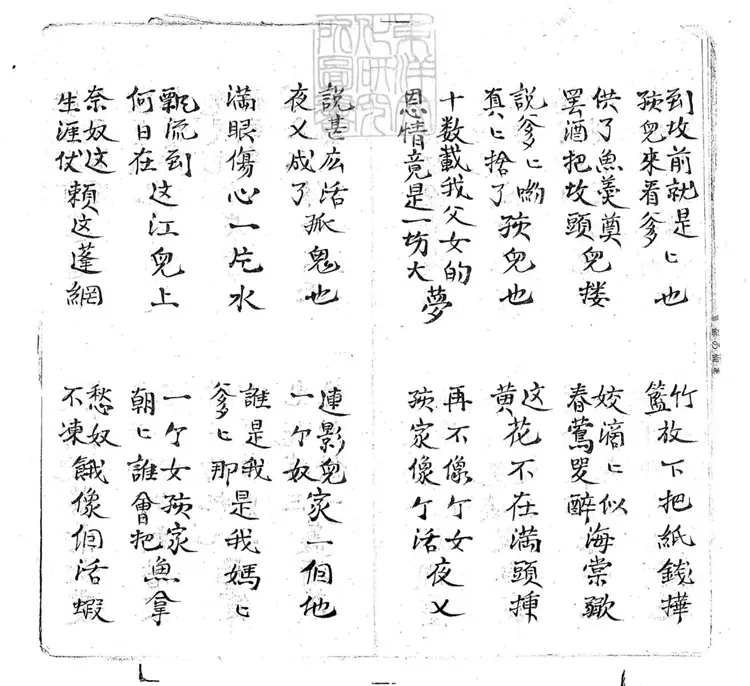 到坟前就是
孩兒來看爹ヒ也
竹
籃放下把紙錢摔
供了魚羹奠
罢酒把坟頭兒搂
姣滴ヒ似海棠
春鶯哭醉
說爹ヒ喲
真ヒ捨了孩兒也
这花不在满頭揷
黄
十数載我父女的
恩情竟是一坊大夢
再不像个女
孩家像个活夜乂
說甚広活孤鬼也
夜乂成了
連影兒家一個他
一个奴
滿眼傷心一片水
誰是我
爹ヒ那是我媽ヒ
飄流到
何日在这江兒上
一个女孩家
朝ヒ誰會把魚拿
奈奴这
生涯仗賴这蓬網
愁奴
不凍餓像個活蝦